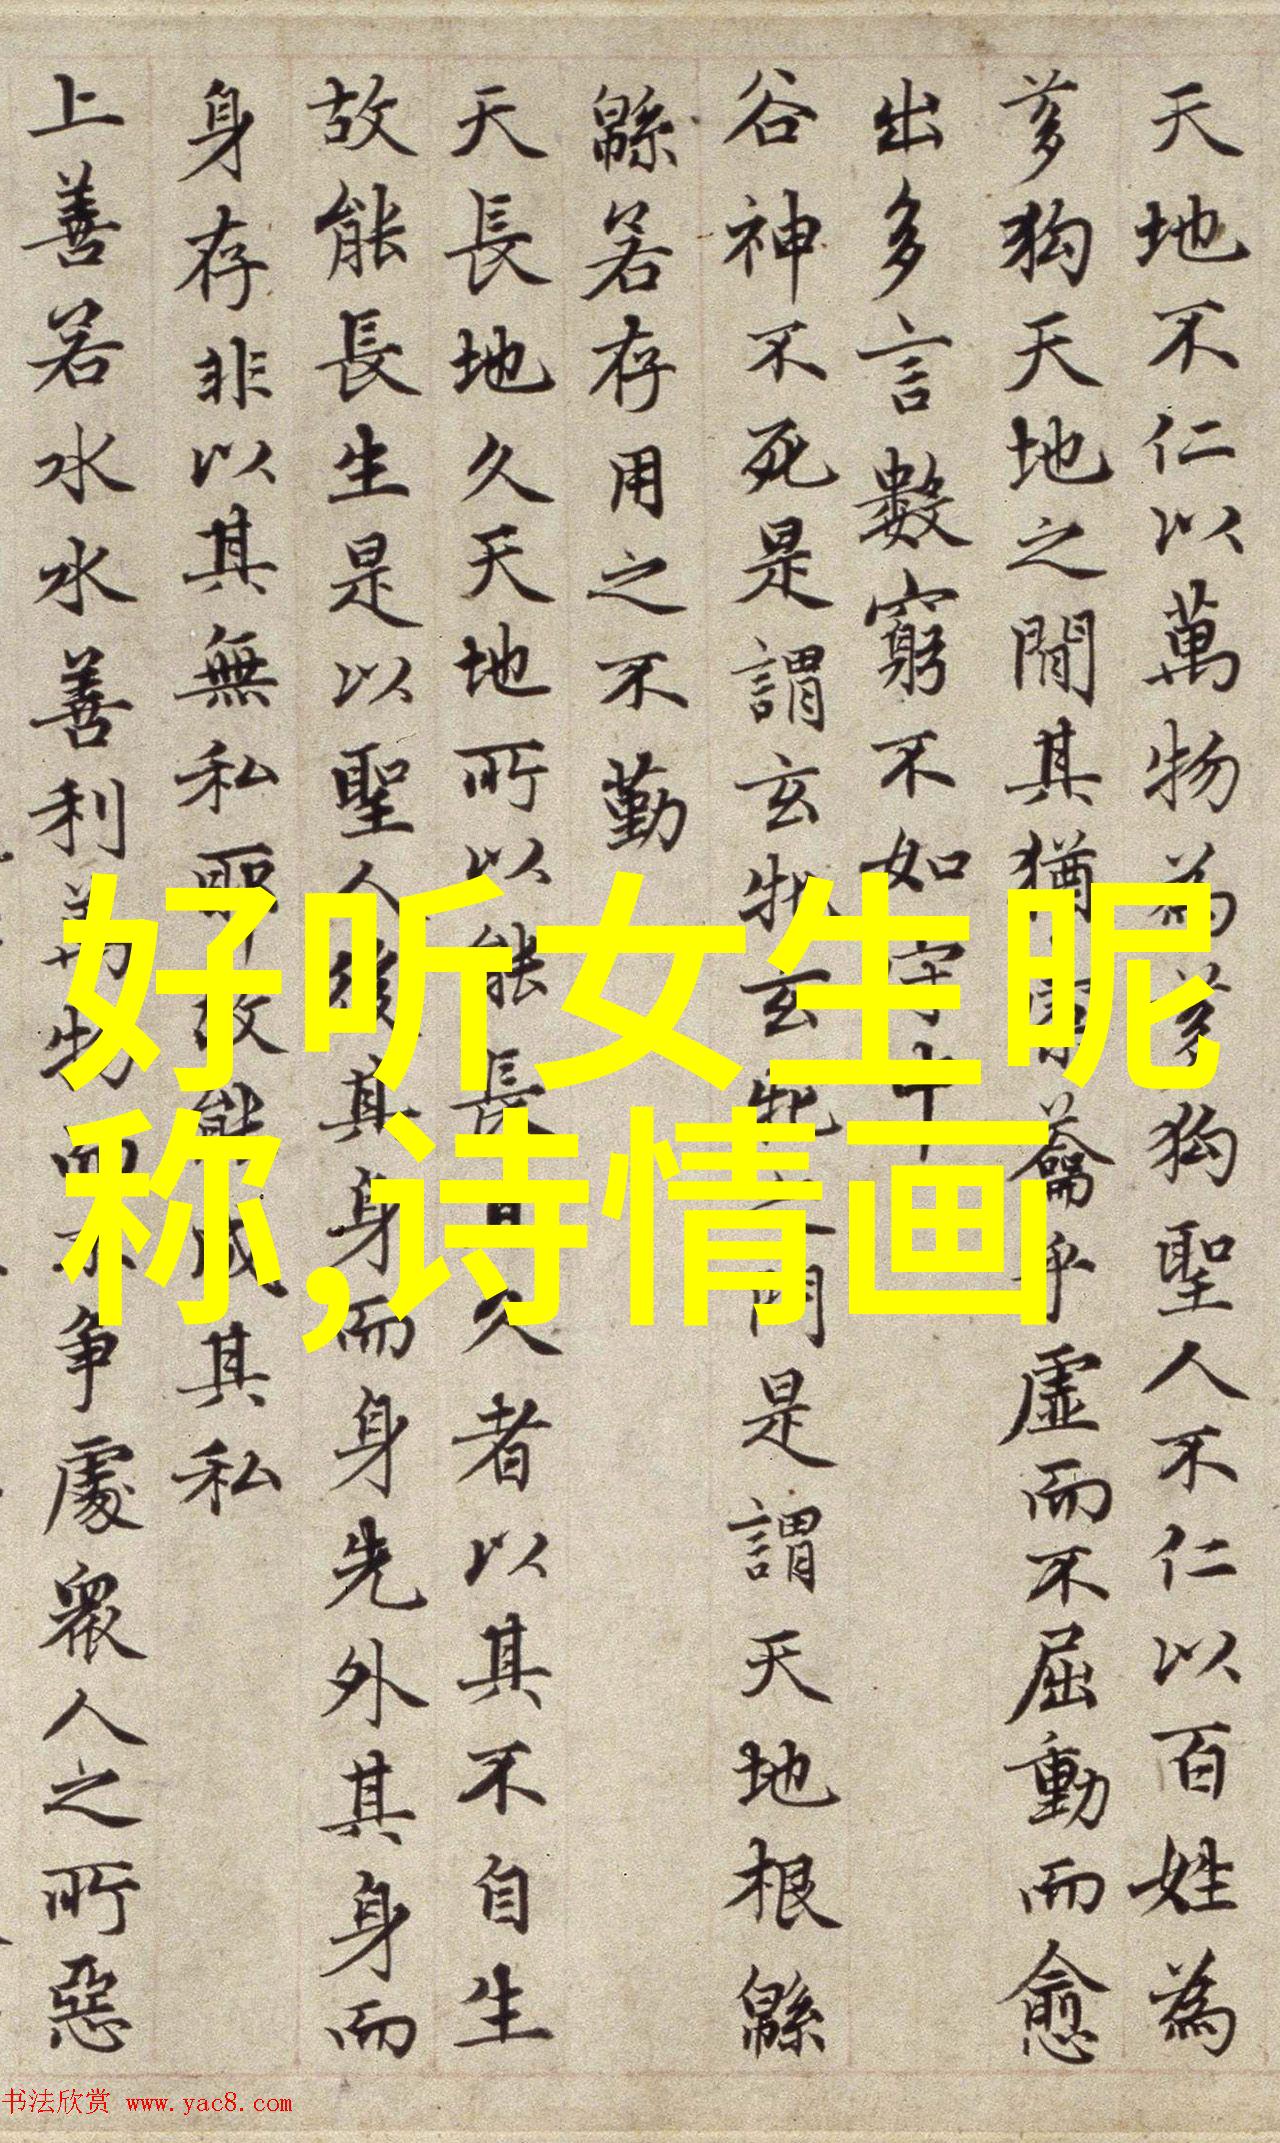 天地不仁以萬物為芻狗聖人不仁以百姓為
芻狗天地之間其猶橐籥乎虛而不屈動而愈
出多言數窮不如守中
谷神不死是謂玄牝玄牝之門是謂天地根緜
緜若存用之不勤
天長地久天地所以能長且久者以其不自生
故能長生是以聖人後其身而身先外其身而
身存非以其無私耶故能成其私
上善若水水善利萬物而不爭處眾人之所惡
好听女生昵
称,诗情画
书法欣赏 www.yac8.com